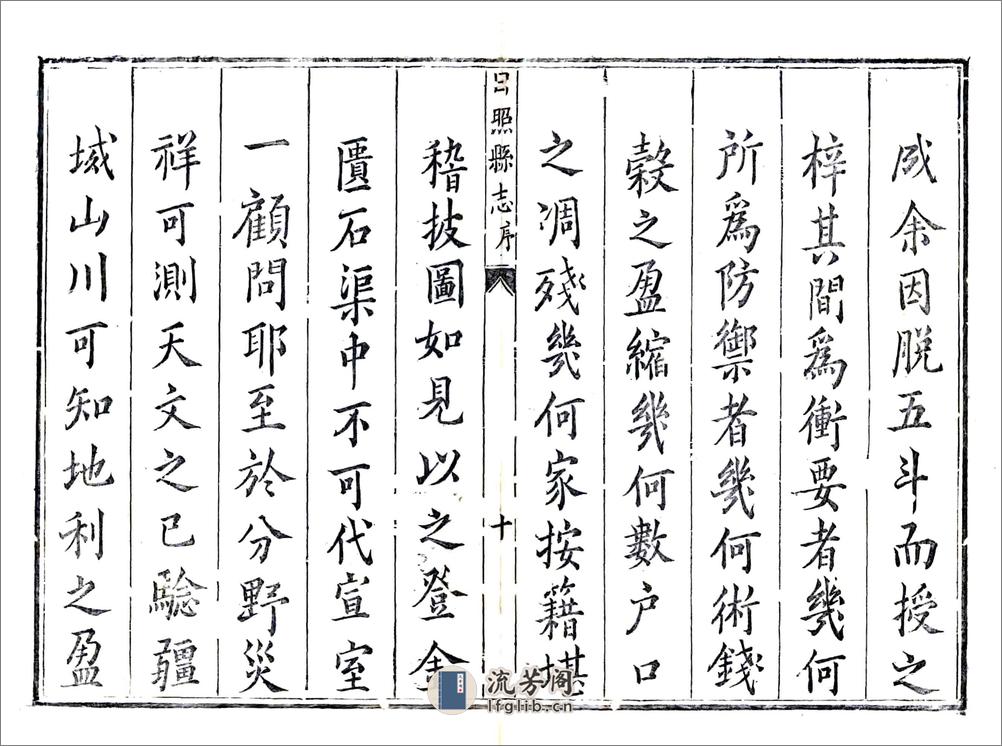 成余因脱五斗而授之
梓其間爲衝要者幾何
所爲防禦者幾何術錢
榖之盈縮幾何數户口
之凋殘幾何家按籍堪
日照縣志序
十
稽披圖如見以之登金
匱石渠中不可代宣室
一顧問耶至於分野災
祥可測天文之已驗疆
域山川可知地利之盈
流芳阁
lfglib.cn